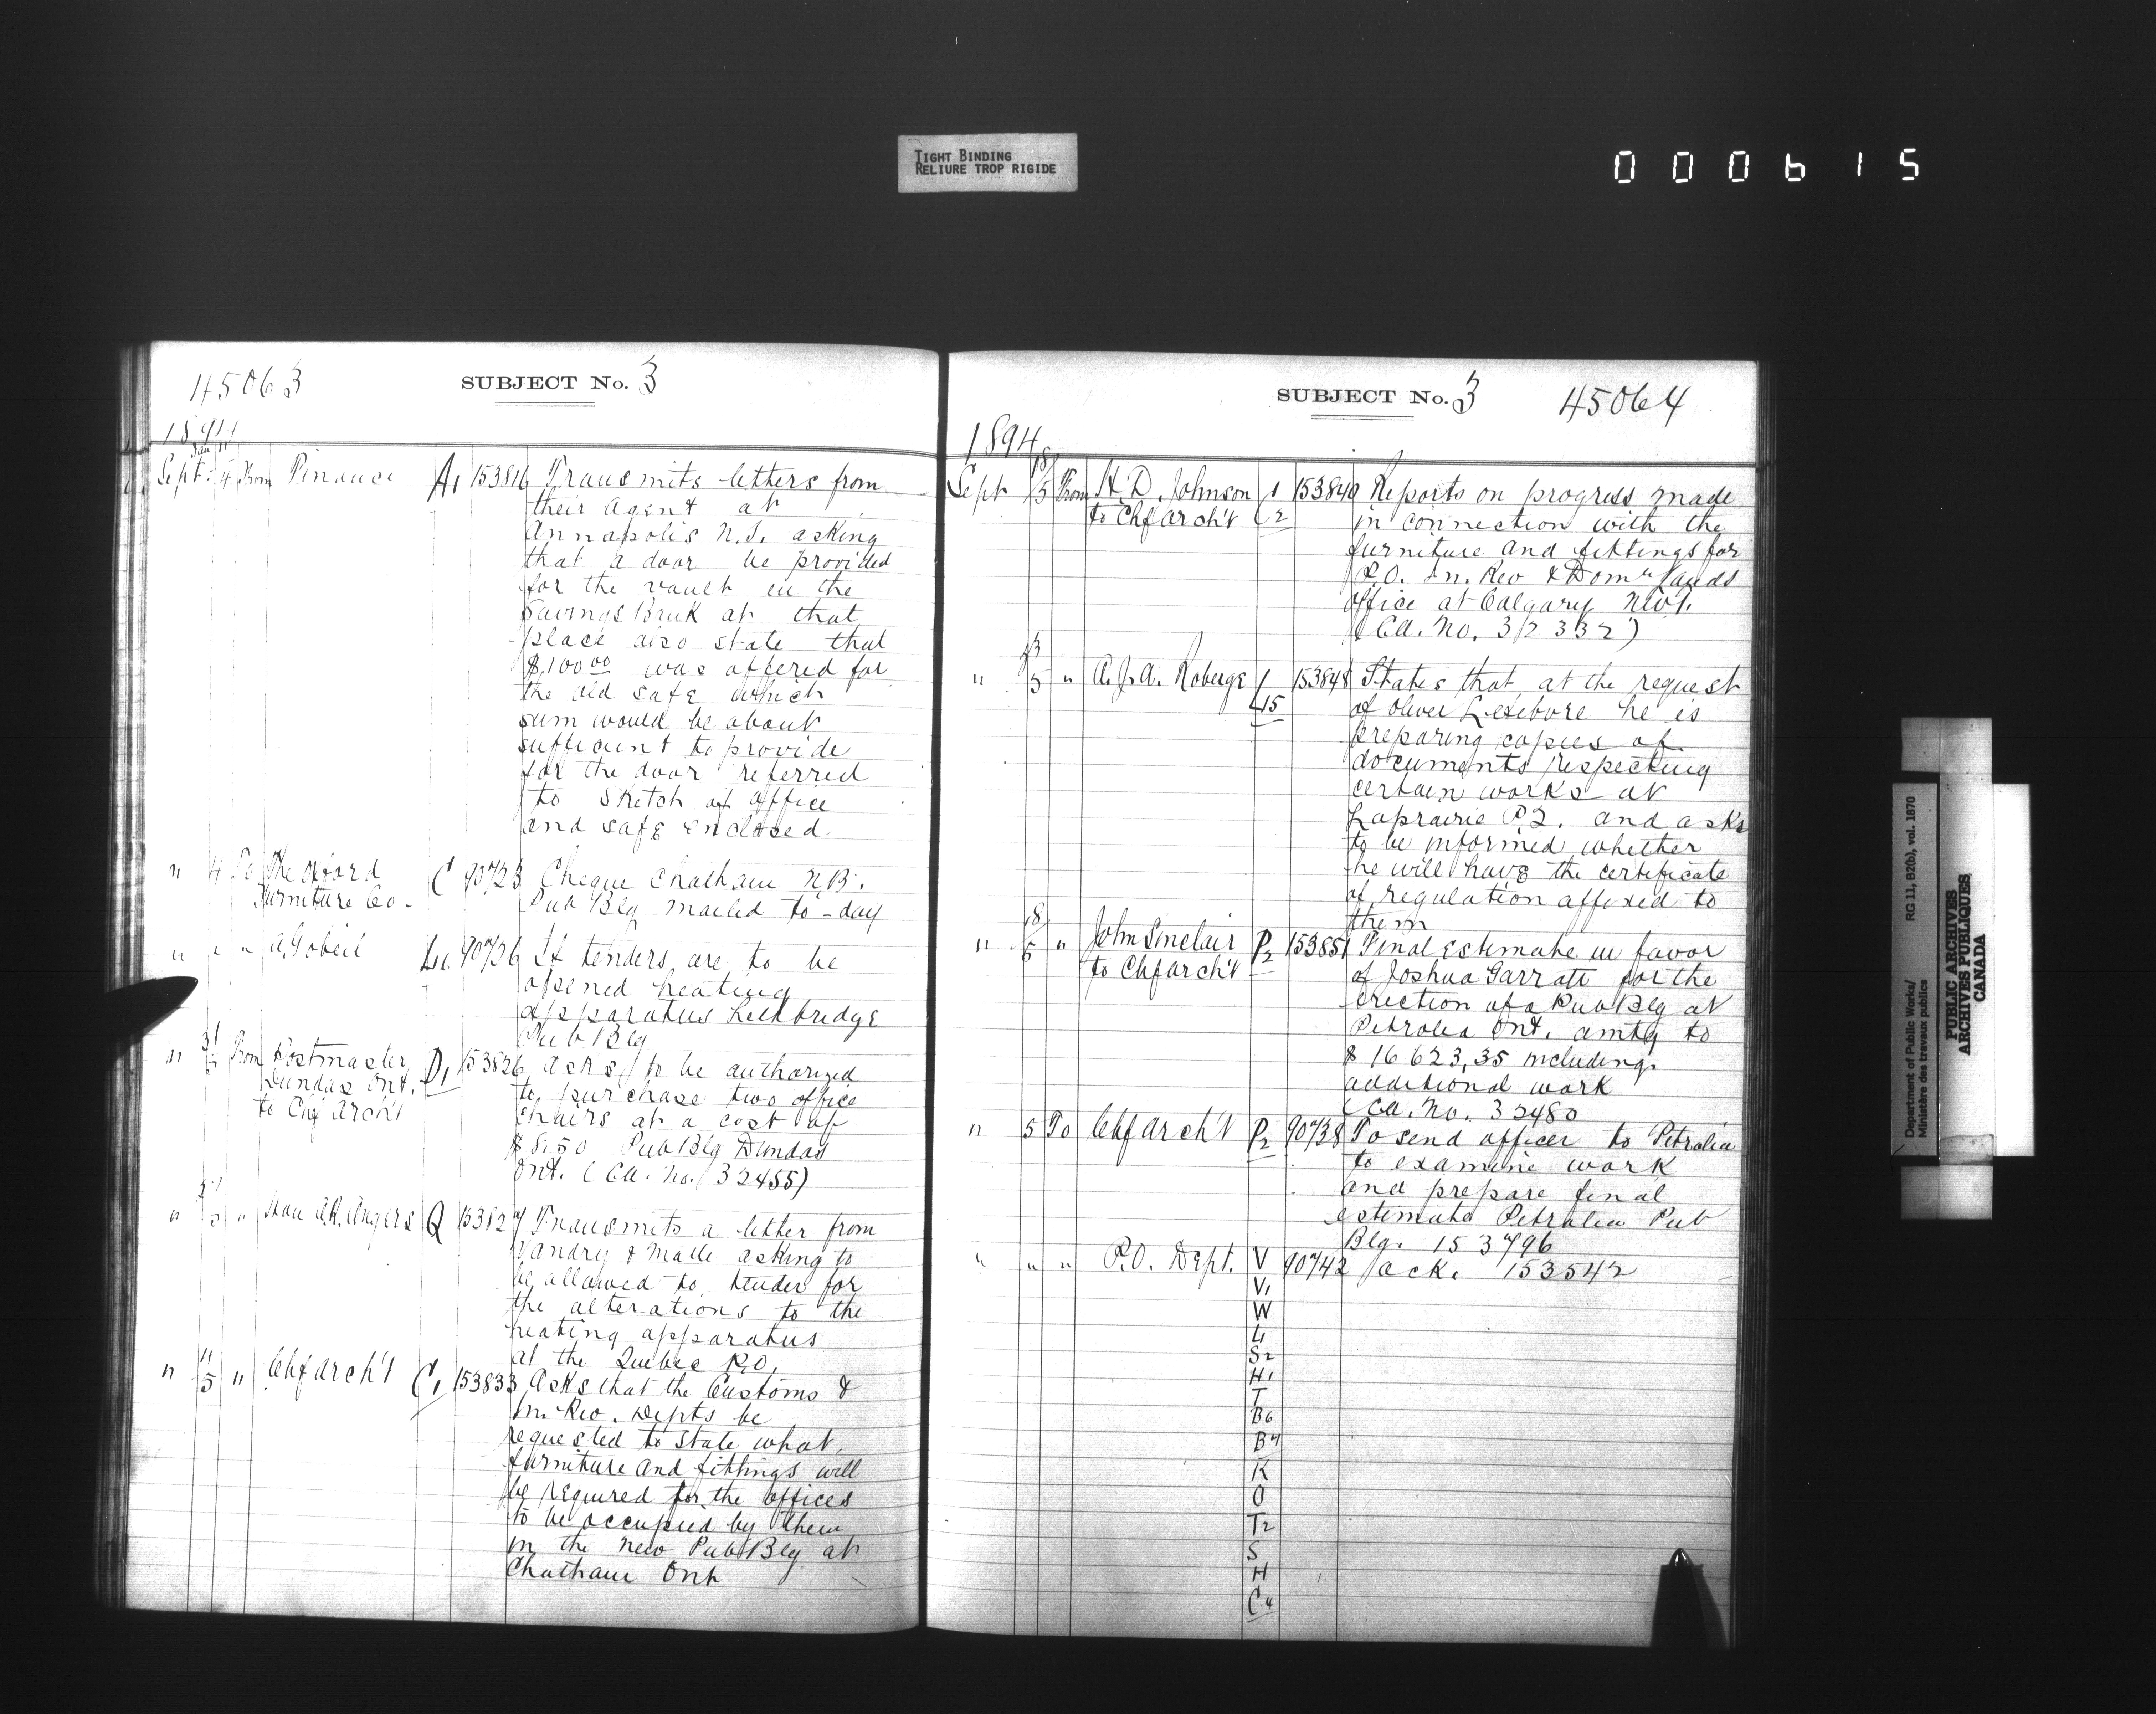 TIGHT BINDING
RELIURE TROP RIGIDE
000615
45063 SUBJECT No. 3
1894
Sept. 4 From Finance A1 153816 Transmits letters from
their Agent at
Annapolis N.S. asking
that a door be provided
for the vault in the
Savings Bank at that
place also state that
$100 00 was offered for
the old safe which
sum would be about
sufficient to provide
for the door referred
to sketch of office
and safe enclosed
" 4 To The Oxford C 90723 Cheque Chatham N.B.
Furniture Co. Pub Blg mailed to-day
" " " A Gobeil 90736 If tenders are to be
opened heating
apparatus Lethbridge
Pub Blg
" From Postmaster D1 153826 Asks to be authorized
Dundas Ont. to purchase two office
to Chf Arch't chairs at a cost of
$8.50 Pub Blg Dundas
Ont. (Ca. No. 32455)
" " Hon A.R. Angers Q 153827 Transmits a letter from
Vandry & Matte asking to
be allowed to tender for
the alterations to the
heating apparatus
at the Quebec P.O.
" 11/5 " Chf Arch't C1 153833 Asks that the Customs &
In. Rev. Depts be
requested to state what
furniture and fittings will
be required for the offices
to be occupied by them
in the new Pub Blg at
Chatham Ont
SUBJECT No. 3 45064
1894
Sept 18/5 From H.D. Johnson 153840 Reports on progress made
to Chf Arch't C2 in connection with the
furniture and fittings for
P.O. In. Rev & Domn Lands
office at Calgary N.W.T.
(Ca. No. 32332)
" 5 " A.J.A. Roberge 153848 States that at the request
L15 of Oliver Lefebvre he is
preparing copies of
documents respecting
certain works at
Laprairie P.Q. and asks
to be informed whether
he will have the certificate
of regulation affixed to
them
" 18/5 " John Sinclair P2 153851 Final Estimate in favor
to Chf Arch't of Joshua Garratt for the
erection of a Pub Blg at
Petrolea Ont. amtg to
$16623,35 including
additional work
(Ca. No. 32480
" 5 To Chf Arch't P2 90738 To send officer to Petrolia
to examine work
and prepare final
estimate Petrolea Pub
Blg. 153796
" " " P.O. Dept. V 90742 Ack. 153542
V1
W
L1
S2
H1
T
B6
B7
K
O
T2
S
H
C4
Department of Public Works/ RG 11, B2(b), vol. 1870
Ministère des travaux publics
PUBLIC ARCHIVES
ARCHIVES PUBLIQUES
CANADA